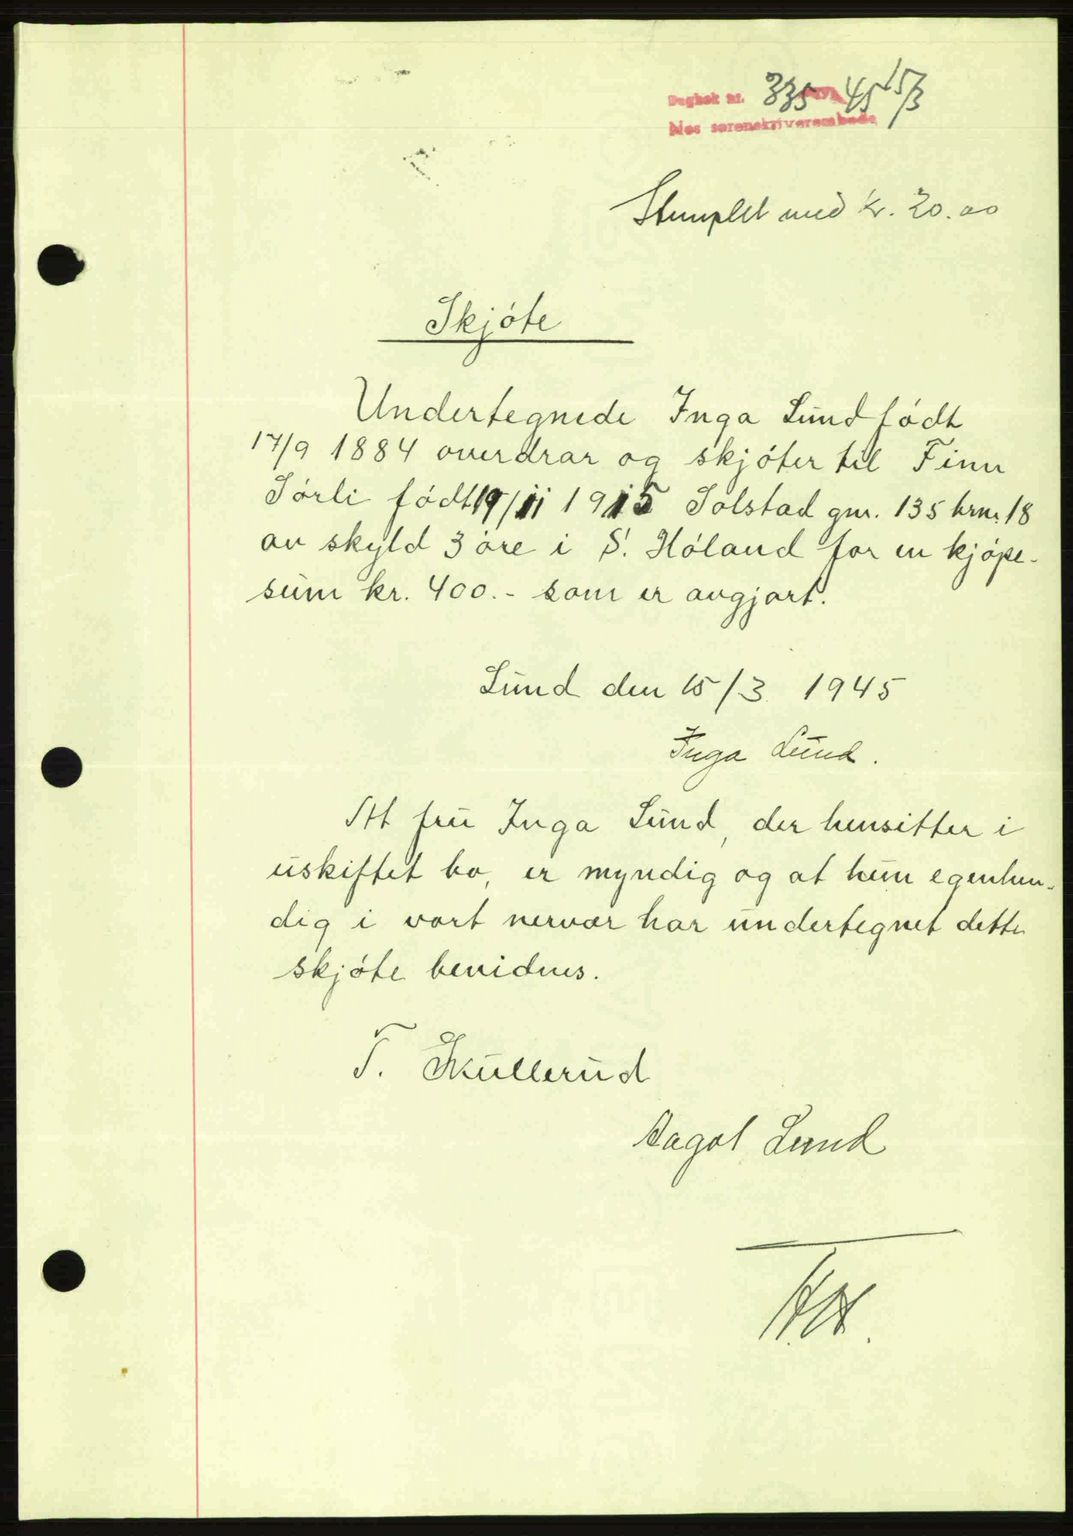 Dagbok nr. 335 45 15/3
Nes sorenskriverembede
Stemplet med kr. 20.00
Skjóte
Undertegnede Inga Lund födt
17/9 1884 overdrar og skjóter til Finn
Sórli födt 19/11 1915 Solstad gnr. 135 brnr 18
av skyld 3 óre i S. Hóland for en kjópe-
sum kr. 400.- som er avgjort.
Lund den 15/3 1945
Inga Lund.
At fru Inga Lund, der hensitter i
uskiftet bo, er myndig og at hun egenhen-
dig i vort nervær har undertegnet dette
skjóte bevidnes.
T. Skullerud
Aagot Lund